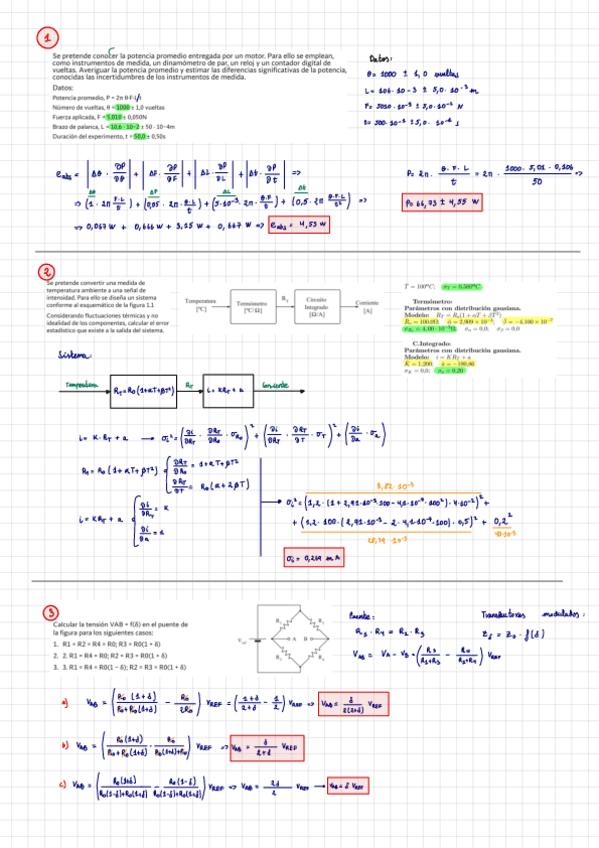 1
Se pretende conocer la potencia promedio entregada por un motor. Para ello se emplean,
como instrumentos de medida, un dinamómetro de par, un reloj y un contador digital de
vueltas. Averiguar la potencia promedio y estimar las diferencias significativas de la potencia,
conocidas las incertidumbres de los instrumentos de medida.
Datos:
Potencia promedio, P = 2π θ·F·L/t
Número de vueltas, θ = 1000 ± 1,0 vueltas
Fuerza aplicada, F = 5,010 ± 0,050N
Brazo de palanca, L = 10,6 · 10−2 ± 50 · 10−4m
Duración del experimento, t = 50,0 ± 0,50s
Datos:
θ = 1000 ± 1,0 vueltas
e_abs = |Δθ · ∂P/∂θ| + |ΔF · ∂P/∂F| + |ΔL · ∂P/∂L| + |Δt · ∂P/∂t| =>
P = 2π · θ·F·L/t = 2π · 1000 · 5,01 · 0,106/50
=> (1 · 2π F·L/t) + (0,05 · 2π θ·L/t) + (5·10⁻³ · 2π · θ·F/t) + (0,5 · 2π θ·F·L/t²) =>
P = 66,73 ± 4,55 W
=> 0,067 W + 0,666 W + 3,15 W + 0,667 W => e_abs = 4,55 W
2
Se pretende convertir una medida de
temperatura ambiente a una señal de
intensidad. Para ello se diseña un sistema
conforme al esquemático de la figura 1.1
Considerando fluctuaciones térmicas y no
idealidad de los componentes, calcular el error
estadístico que existe a la salida del sistema.
Temperatura
[ºC]
Termómetro
[ºC/Ω]
R_T
Circuito
Integrado
[Ω/A]
Corriente
[A]
T = 100ºC; σ_T = 0,500ºC
Termómetro:
Parámetros con distribución gausiana.
Modelo: R_T = R₀(1 + αT + βT²)
C.Integrado:
Parámetros con distribución gausiana.
Modelo: i = KR_T + a
K = 1,200; a = −100,00
σ_K = 0,0; σ_a = 0,20
Sistema:
Temperatura
R_T = R₀(1+αT+βT²)
R_T
i = K R_T + a
Corriente
i = K · R_T + a → σ_i² = (∂i/∂R_T · ∂R_T/∂R₀ · σ_R₀)² + (∂i/∂R_T · ∂R_T/∂T · σ_T)² + (∂i/∂a · σ_a)²
R_T = R₀(1+αT+βT²) { ∂R_T/∂R₀ = 1+αT+βT²
∂R_T/∂T = R₀(α+2βT)
i = KR_T + a { ∂i/∂R_T = K
∂i/∂a = 1
σ_i² = (1,2 · (1 + 2,91·10⁻³·100 − 4,1·10⁻⁷·100²) · 4·10⁻²)² +
+ (1,2 · 100 · (2,91·10⁻³ − 2 · 4,1·10⁻⁷·100) · 0,5)² + 0,2²
3
Calcular la tensión VAB = f(δ) en el puente de
la figura para los siguientes casos:
1. R1 = R2 = R4 = R0; R3 = R0(1 + δ)
2. 2. R1 = R4 = R0; R2 = R3 = R0(1 + δ)
3. 3. R1 = R4 = R0(1 − δ); R2 = R3 = R0(1 + δ)
A B
Puente:
R₁ · R₄ = R₂ · R₃
Transductores modulados:
a) V_AB = (R₀(1+δ)/(R₀+R₀(1+δ)) − R₀/2R₀) V_REF = ((1+δ)/(2+δ) − 1/2) V_REF => V_AB = δ/(2(2+δ)) V_REF
b) V_AB = (R₀(1+δ)/(R₀+R₀(1+δ)) − R₀/(R₀(1+δ)+R₀)) V_REF => V_AB = δ/(2+δ) V_REF
c) V_AB = (R₀(1+δ)/(R₀(1−δ)+R₀(1+δ)) − R₀(1−δ)/(R₀(1−δ)+R₀(1+δ))) V_REF => V_AB = 2δ/2 V_REF → V_AB = δ V_REF